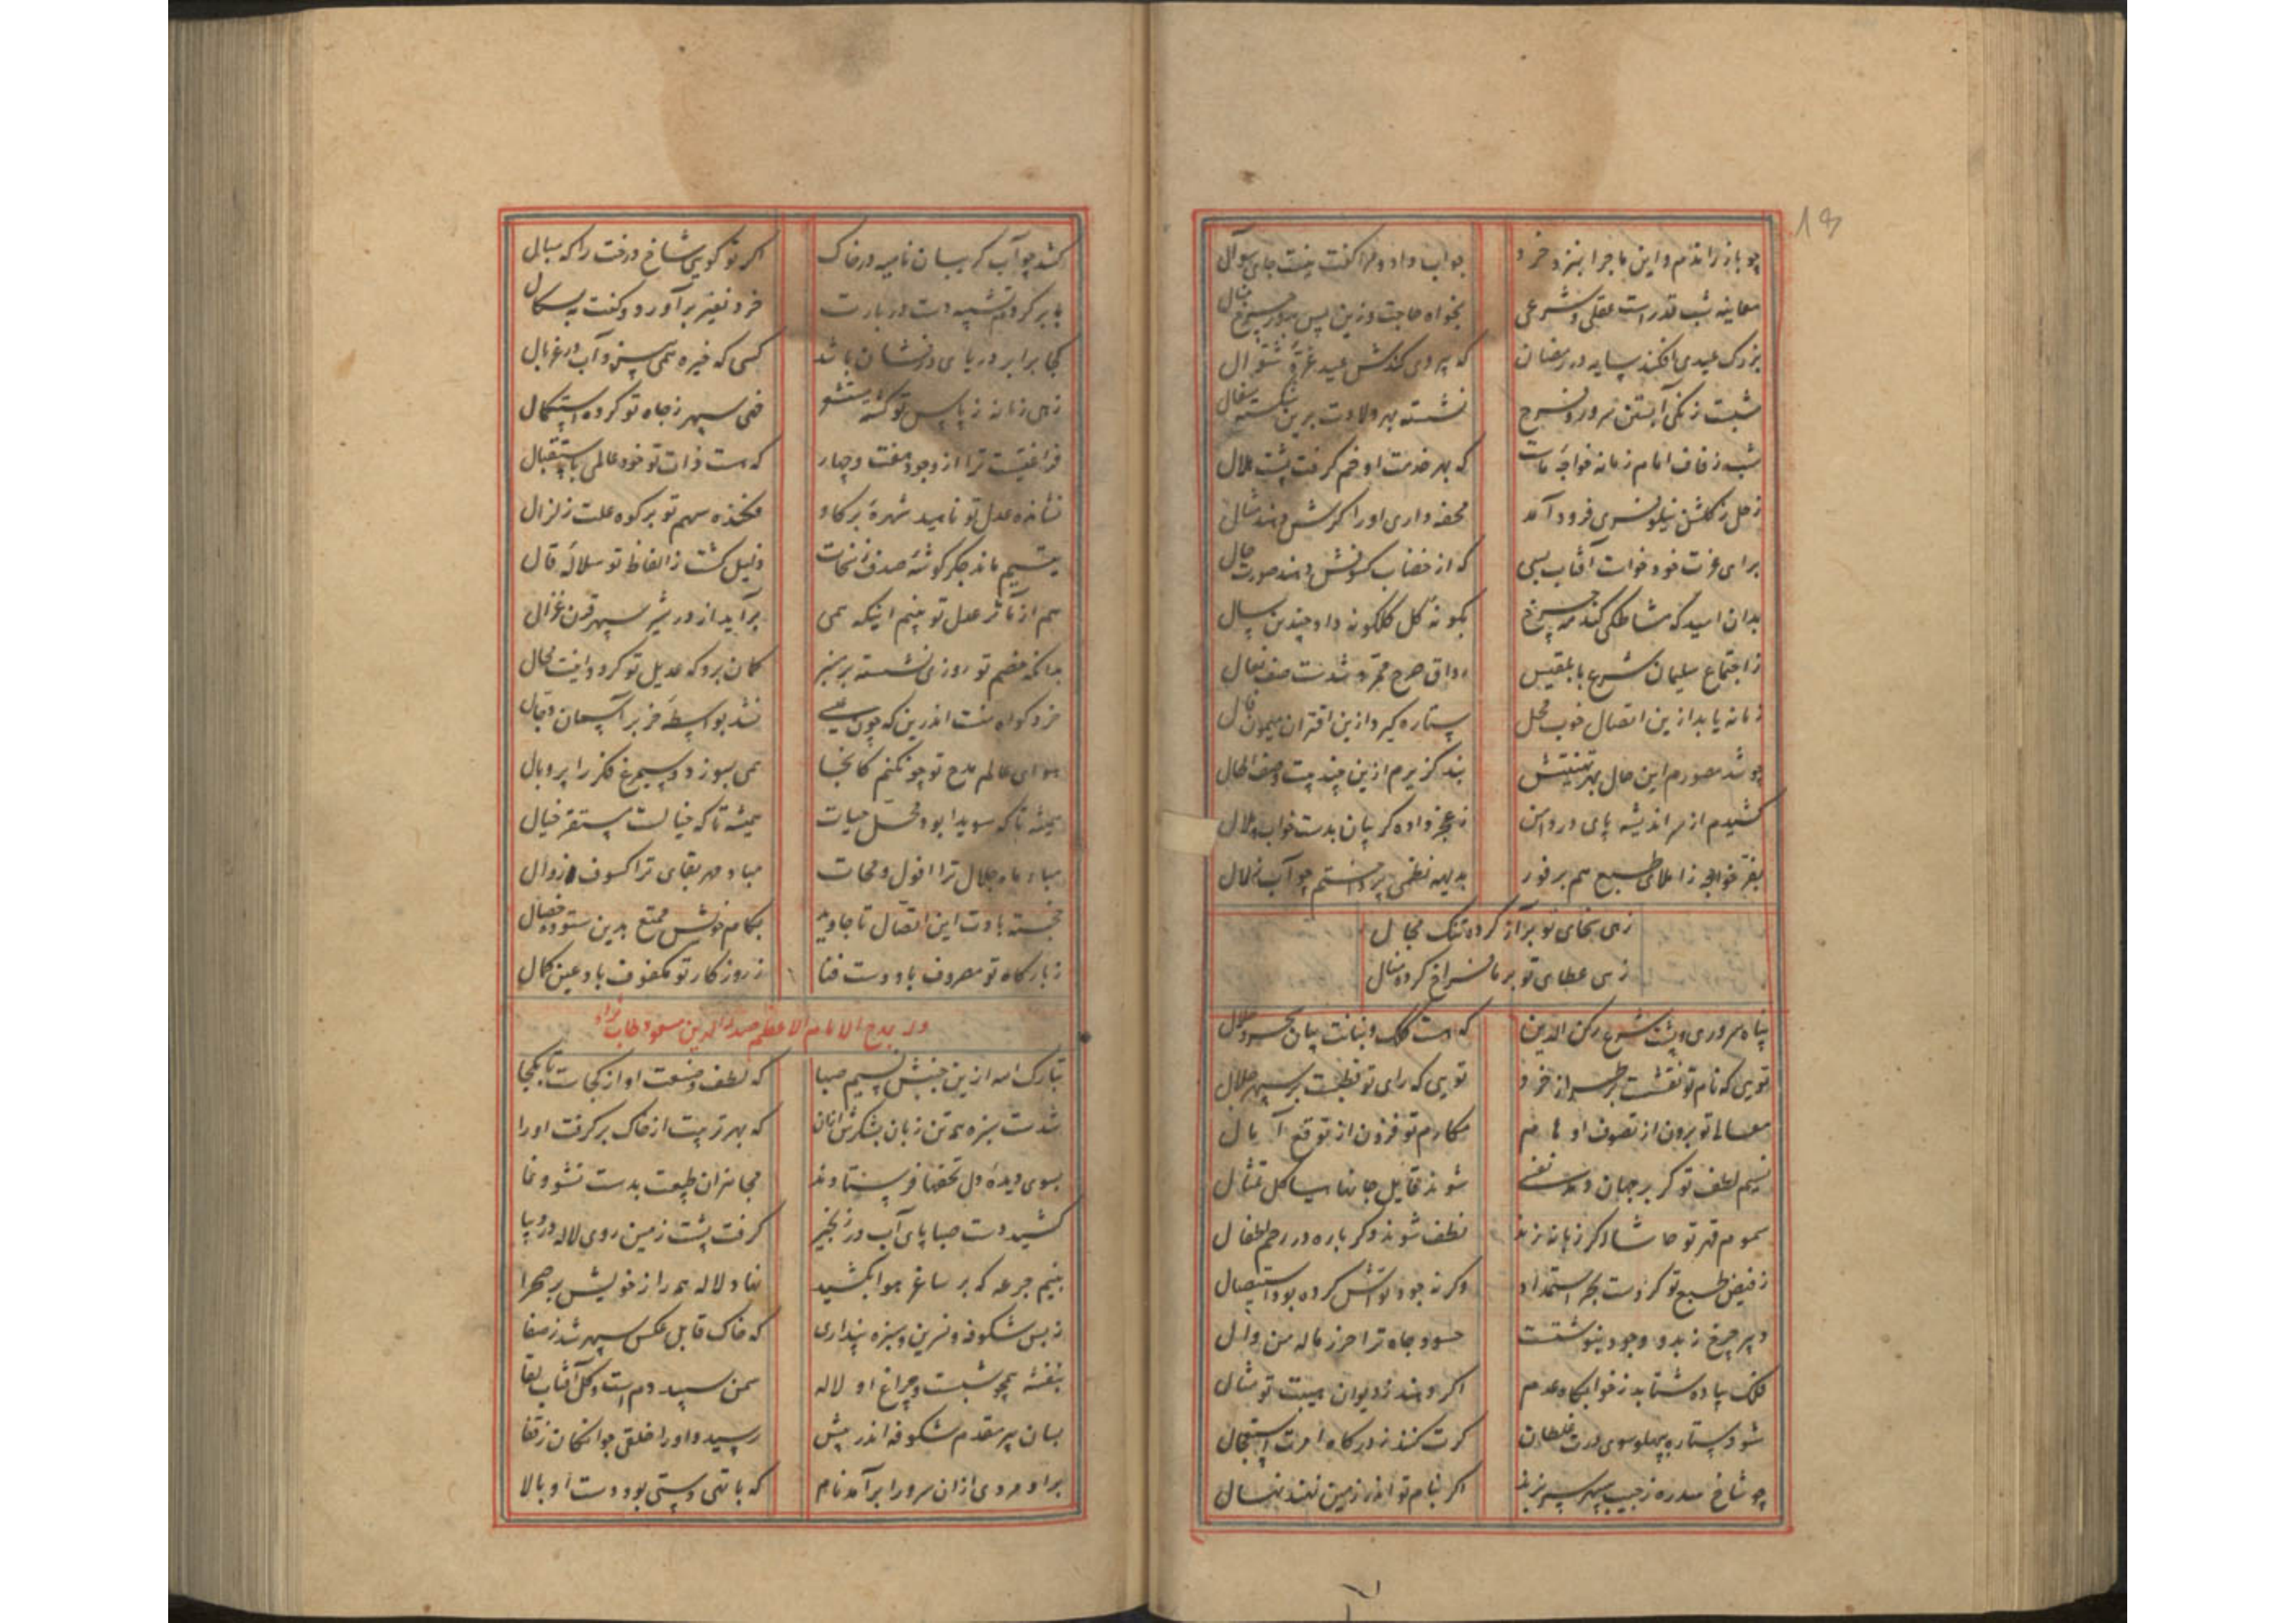 18
چو باز راندم و این ماجرا بنزد خرد جواب داد و مرا گفت نیست جای سوال
معاینه شب قدر است عقلی و شرعی بخواه حاجت وزین پس
بزرک عیدی افکند سایه در رمضان که پیروی کندش عید غرّهٔ شوال
شبت زنکی آبستن سرور و فرح نشسته بهر ولادت برین شکسته سفال
شب زفاف امام زمانه خواجهٔ ماست که بهر خدمت او خم گرفت پشت هلال
زحل ز گلشن نیلوفری فرود آمد محفه داری او را گرش دهند مثال
برای عزت خود خواست آفتاب بسی که از خضاب کسوفش دهند صورت خال
بدان امید که مشاطگی کند مه چرخ بگونهٔ گل گلگونه داد چندین سال
ز اجتماع سلیمان شرع با بلقیس رواق صرح ممرد شدست صف نعال
زمانه یابد ازین اتصال خوب محل ستاره گیرد ازین اقتران میمون فال
چو شد مصورم این حال بهر تهنیتش بند گزیرم ازین چند بیت وصف الحال
کشیدم از سر اندیشه پای در دامن ز عجز داده گریبان بدست خواب ملال
بفر خواجه ز املای طبع هم بر فور بدیهه نظمی پرداختم چو آب زلال
زهی سخای تو بر آز کرده تنک مجال
زهی عطای تو بر ما فراخ کرده منال
پناه سروری و پشت شرع رکن الدین که هست کلک و بنانت بیان سحر حلال
تویی که نام تو نقشت بر طراز خرد تویی که رای تو قطبست بر سپهر جلال
معالی تو برون از تصرف اوهام مکارم تو فزون از توقع آمال
نسیم لطف تو گر بر جهان دمد نفسی شوند قابل جانها هیاکل تمثال
سموم قهر تو حاشا و گر زبانه زند نطف شوند دگر باره در رحم اطفال
ز فیض طبع تو کردست بحر استمداد وگرنه جود تواش کرده بود استیصال
دبیر چرخ ز بدو وجود بنوشتست حسود جاه ترا حرز ماله من وال
فلک پیاده شتابد ز خوابگاه عدم اگر دهند ز دیوان هیبت تو مثال
شود ستاره بپهلو سوی درت غلطان گرت کنند ز درگاه امرت استعجال
چو شاخ سدره ز جیب سپهر سر بزند اگر بنام تو اندر زمین نهند نهال
کشد چو آب گریبان نامیه در خاک اگر تو گویی شاخ درخت را که ببال
با بر کردم تشبیه دست دربارت خرد نفیر برآورد و گفت بد مسگال
کجا برابر دریای درفشان باشد کسی که خیره همی‌بیزد آب در غربال
زهی زمانه ز پاس تو گشته مستشعر خهی سپهر ز جاه تو کرده استکمال
فراغتیست ترا از وجود هفت و چهار که هست ذات تو خود عالمی باستقلال
نشانده عدل تو نامید شهره بر گاو فکنده سهم تو بر کوه علت زلزال
یتیم ماند جگر گوشهٔ صدف ز سخات ذلیل گشت ز الفاظ تو سلالهٔ قال
هم از مآثر عدل تو بینم اینکه همی برآید از در شیر سپهر قرن غزال
بدانکه خصم تو روزی نشسته بر منبر گمان برد که عدیل تو گردد اینت محال
خرد گواه منست اندرین که چون عیسی نشد بواسطهٔ خر بر آسمان دجال
هوای عالم مدح تو چو نکنم کانجا همی بسوزد سیمرغ فکر را پر و بال
همیشه تا که سویدا بود محل حیات همیشه تا که خیالست مستقر خیال
مباد ماه جلال ترا افول و محاق مباد مهر بقای ترا کسوف و زوال
خجسته بادت این اتصال تا جاوید بکام خویش ممتع بدین ستوده خصال
ز بارگاه تو مصروف باد دست فنا ز روزگار تو مکفوف باد عین کمال
و له یمدح الامام الاعظم صدر الدین مسعود طاب ثراه
تبارک الله ازین جنبش نسیم صبا که لطف صنعت او از کجاست تا بکجا
شدست سبزه همه تن زبان بشکرش ازان که بهر تربیت از خاک برگرفت او را
بسوی دیدهٔ دل تحفها فرستادند مجاهزان طبیعت بدست نشو و نما
کشید دست صبا پای آب در زنجیر گرفت پشت زمین روی لاله در دیبا
بنیم جرعه که بر ساغر هوا بکشید نهاد لاله همه راز خویش بر صحرا
ز بس شکوفه و نسرین و سبزه پنداری که خاک قابل عکس سپهر شد ز صفا
بنفشه همچو شبست و چراغ او لاله سمن سپیده دم است و گل آفتاب لقا
بسان پیر مقدم شکوفه اندر پیش رسید و او را خلق جوانکان ز قفا
برادمردی ازان سرو را برآمد نام که با تهی دستی بود دست او بالا